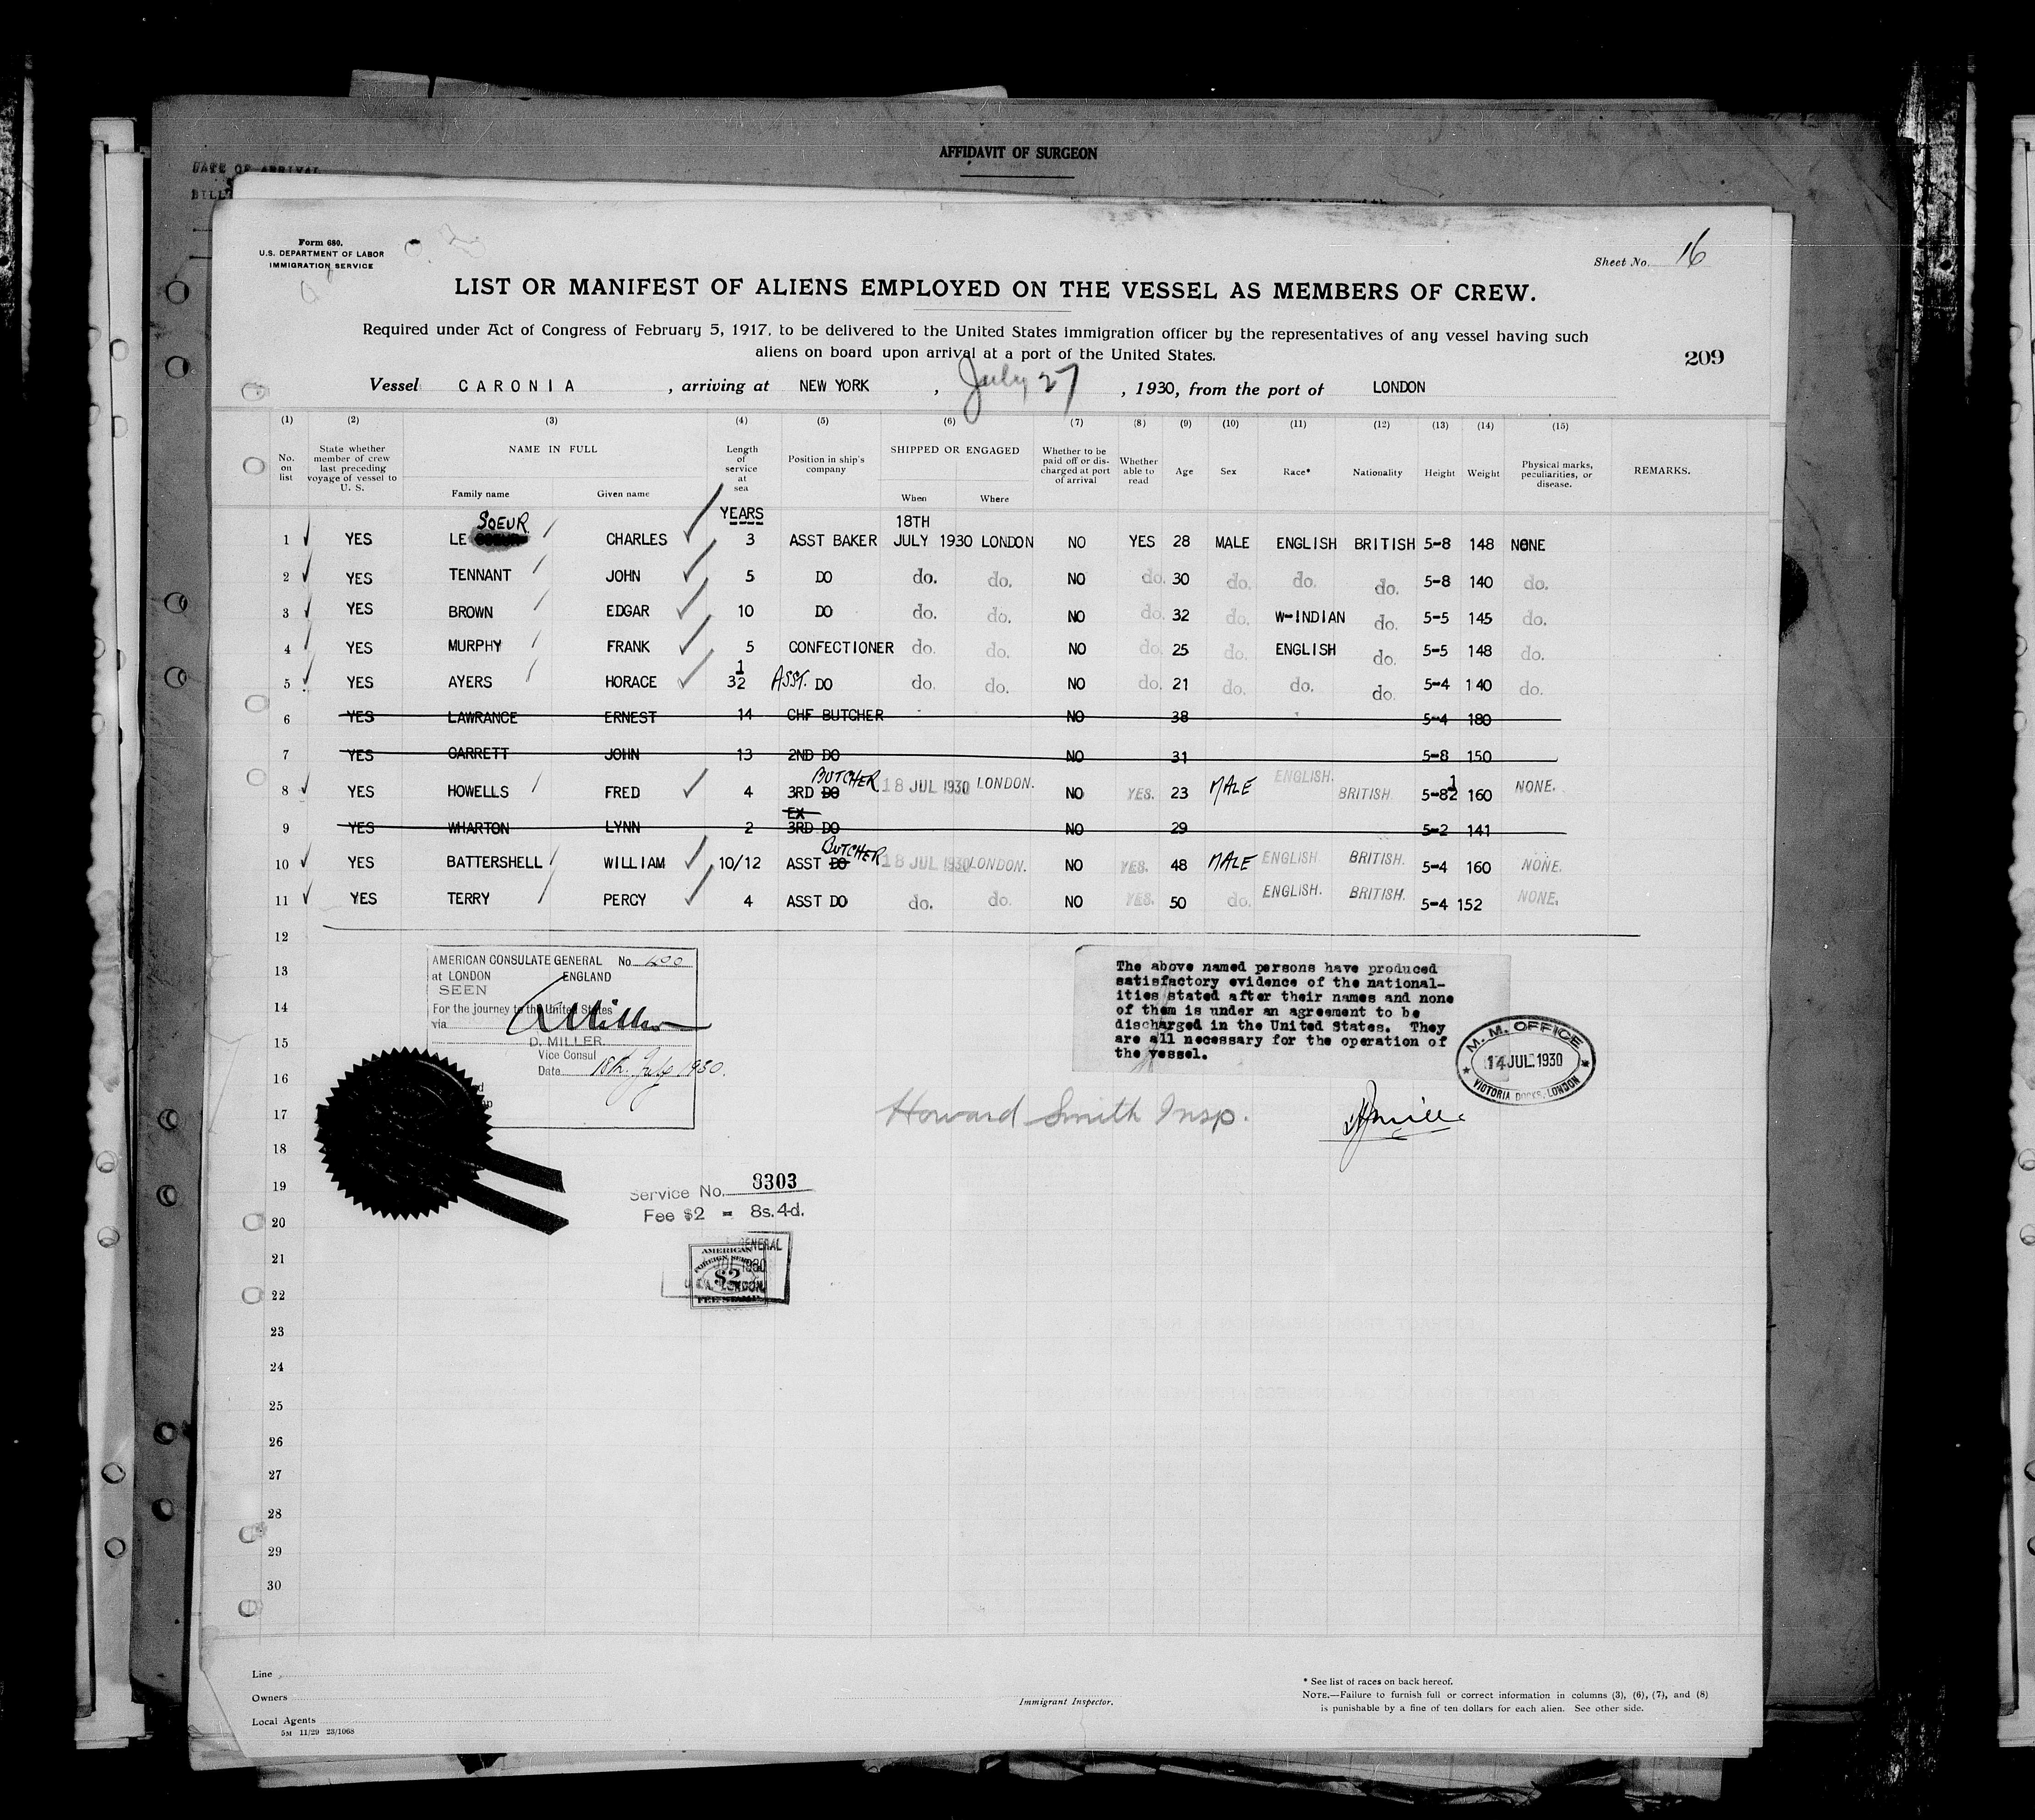 AFFIDAVIT OF SURGEON
DATE OF ARRIVAL
Form 680.
U.S. DEPARTMENT OF LABOR
IMMIGRATION SERVICE
Sheet No. 16
LIST OR MANIFEST OF ALIENS EMPLOYED ON THE VESSEL AS MEMBERS OF CREW.
Required under Act of Congress of February 5, 1917, to be delivered to the United States immigration officer by the representatives of any vessel having such
aliens on board upon arrival at a port of the United States.
209
Vessel CARONIA, arriving at NEW YORK, July 27, 1930, from the port of LONDON
(1) (2) (3) (4) (5) (6) (7) (8) (9) (10) (11) (12) (13) (14) (15)
No. on list
State whether member of crew last preceding voyage of vessel to U. S.
NAME IN FULL
Family name
Given name
Length of service at sea
Position in ship's company
SHIPPED OR ENGAGED
When
Where
Whether to be paid off or discharged at port of arrival
Whether able to read
Age
Sex
Race*
Nationality
Height
Weight
Physical marks, peculiarities, or disease.
REMARKS.
SOEUR YEARS 18TH
1 YES LE CHARLES 3 ASST BAKER JULY 1930 LONDON NO YES 28 MALE ENGLISH BRITISH 5-8 148 NONE
2 YES TENNANT JOHN 5 DO do. do. NO do. 30 do. do. do. 5-8 140 do.
3 YES BROWN EDGAR 10 DO do. do. NO do. 32 do. W-INDIAN do. 5-5 145 do.
4 YES MURPHY FRANK 5 CONFECTIONER do. do. NO do. 25 do. ENGLISH do. 5-5 148 do.
5 YES AYERS HORACE 3 1/2 ASST. DO do. do. NO do. 21 do. do. do. 5-4 140 do.
6 YES LAWRANCE ERNEST 14 CHF BUTCHER NO 38 5-4 180
7 YES GARRETT JOHN 13 2ND DO NO 31 5-8 150
8 YES HOWELLS FRED 4 3RD DO BUTCHER 18 JUL 1930 LONDON. NO YES. 23 MALE ENGLISH. BRITISH 5-8 1/2 160 NONE.
9 YES WHARTON LYNN 2 EX 3RD DO NO 29 5-2 141
10 YES BATTERSHELL WILLIAM 10/12 ASST DO BUTCHER 18 JUL 1930 LONDON. NO YES. 48 MALE ENGLISH BRITISH. 5-4 160 NONE.
11 YES TERRY PERCY 4 ASST DO do. do. NO YES. 50 do. ENGLISH. BRITISH. 5-4 152 NONE.
12
13
14
15
16
17
18
19
20
21
22
23
24
25
26
27
28
29
30
AMERICAN CONSULATE GENERAL No
at LONDON ENGLAND
SEEN
For the journey to the United States
via
D. MILLER.
Vice Consul
Date 18th July 1930.
The above named persons have produced
satisfactory evidence of the national-
ities stated after their names and none
of them is under an agreement to be
discharged in the United States. They
are all necessary for the operation of
the vessel.
M. M. OFFICE
14 JUL. 1930
VICTORIA DOCKS, LONDON
Howard Smith Insp.
Service No. 8303
Fee $2 = 8s. 4d.
GENERAL
AMERICAN
FOREIGN SERVICE
1930
$2
LONDON.
FEE STAMP
Line
Owners
Local Agents
5M 11/29 23/1068
Immigrant Inspector.
* See list of races on back hereof.
NOTE.—Failure to furnish full or correct information in columns (3), (6), (7), and (8)
is punishable by a fine of ten dollars for each alien. See other side.